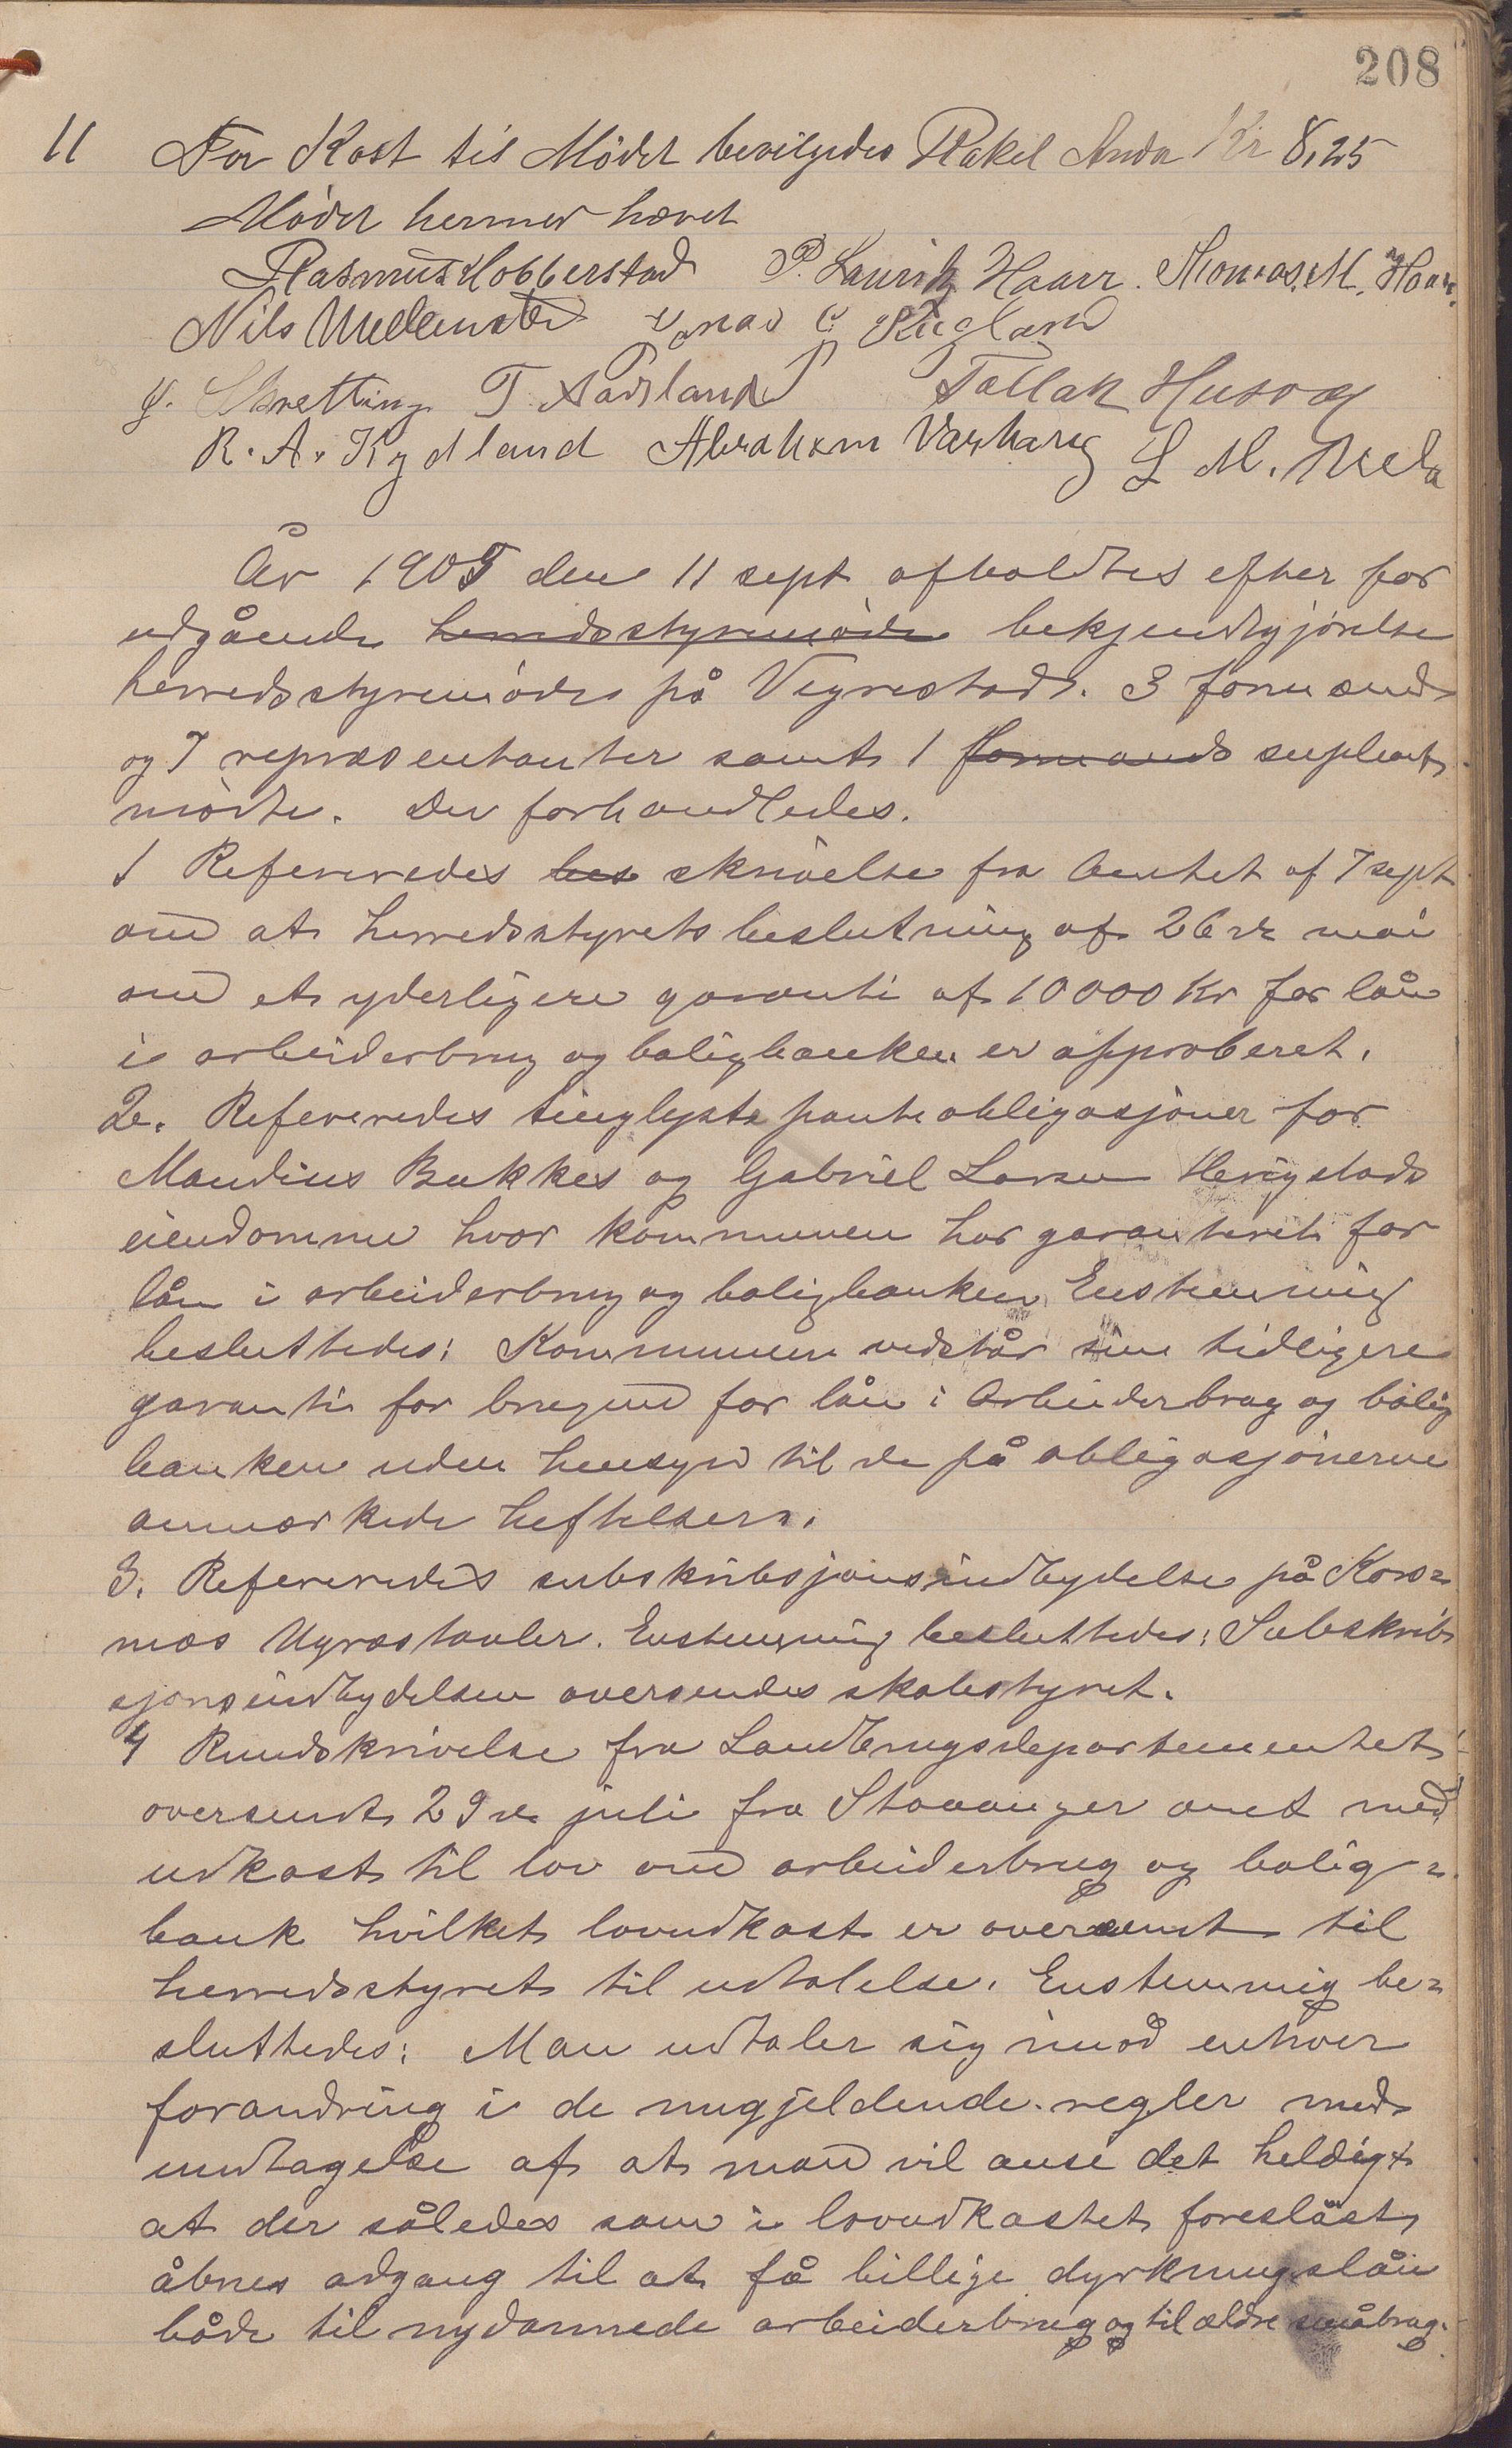 208
11 For Kost til Mødet bevilgedes Rakel Anda Kr 8,25
Mødet hermed hævet
Rasmus Hobberstad P. Lauritz Haarr. Thomas. M. Haar.
Nils Jonas C. Rugland
J. Skretting T. Aarsland Tollak Husvæg
R. A. Kydland Abraham Varhaug L M.
År 1905 den 11 sept afholdtes efter for
udgående herredsstyremøde bekjendtgjørelse
herredsstyremøde på Vigrestad. 3 formænd
og 7 repræsentanter samt 1 formands suplent
mødte. Der forhandledes.
1 Refereredes bes skrivelse fra Amtet af 7 sept
om at herredsstyrets beslutning af 26de mai
om et yderligere garanti af 10000 Kr for lån
i arbeiderbrug og boligbanken er approberet.
2. Refereredes tinglyste panteobligasjoner for
Maudius Bukkes og Gabriel Larsen Herigstads
eiendomme hvor kommunen har garanteret for
lån i arbeiderbrug og boligbanken. Enstemmig
besluttedes: Kommunen vedstår sin tidligere
garanti for brugene for lån i Arbeiderbrug og bolig
banken uden hensyn til de på obligasjonerne
anmærkede heftelsern.
3. Refereredes subskribsjonsindbydelse på Kors=
mos Ugræstavler. Enstemmig besluttedes: Subskrib
sjonsindbydelsen oversendes skolestyret.
4 Rundskrivelse fra Landbrugsdepartementet
oversendt 29de juli fra Stavanger amt med
udkast til lov om arbeiderbrug og bolig=
bank hvilket lovudkast er oversendt til
herredsstyret til udtalelse. Enstemmig be=
sluttedes: Man udtaler sig imod enhver
forandring i de nugjeldende regler med
undtagelse af at man vil anse det heldigt
at der således som i lovudkastet foreslåst
åbnes adgang til at få billige dyrkningslån
både til nydannede arbeiderbrug og til ældre småbrug.